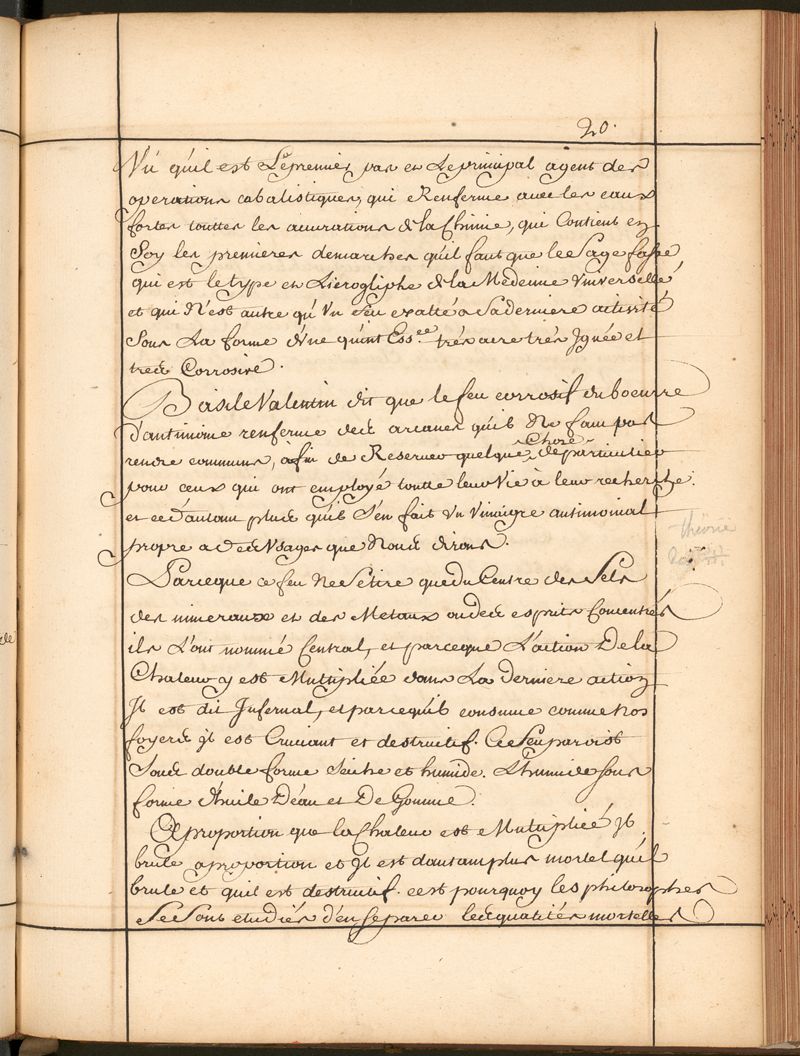 20.
Vû qu'il est Le premier pas et Le principal agent des
operations cabalistiques, qui Renferme avec les eaux
fortes touttes les operations de la Chimie, qui Contient en
Soy les premieres demarches qu'il faut que le Sage fasse
qui est le type et Lierogliphe de la Medecine Universelle
et qui N'est autre qu'Un feu exalté a Sa derniere activité
Sous La forme d'Une quint Ess.ce très acre très Jgnée et
très Corrosive.
Basile Valentin dit que le feu corrosif du boeurre
d'antimoine renferme des arcanes qu'il Ne faut pas
rendre communs, afin de Reserver quelque Chose de particulier
pour ceux qui ont employé toutte leur Vie à leur recherche.
et ce d'autant plus qu'il S'en fait Un Vinaigre antimonial
propre a des Usages que Nous dirons.
théorie
Parceque ce feu Ne Se tire que du Centre des Sels
des mineraux et des Metaux ou des esprits Concentrés
ils L'ont nommé Central, et parceque L'action De la
Chaleur y est Multipliée dans La derniere action
Jl est dit Jnfernal, et parcequ'il consume comme Nos
foyers jl est Cruciant et destructif. Ce feu paroist
Sous double forme Seiche et humide. L'humide sous
forme d'huile D'eau et De Gomme.
A proportion que la Chaleur est Multipliée Jl
brule a proportion et Jl est dautant plus mortel qu'il
brule et qu'il est destructif. cest pourquoy les philosophes
Se Sont etudiés d'en Separer les qualités mortelles